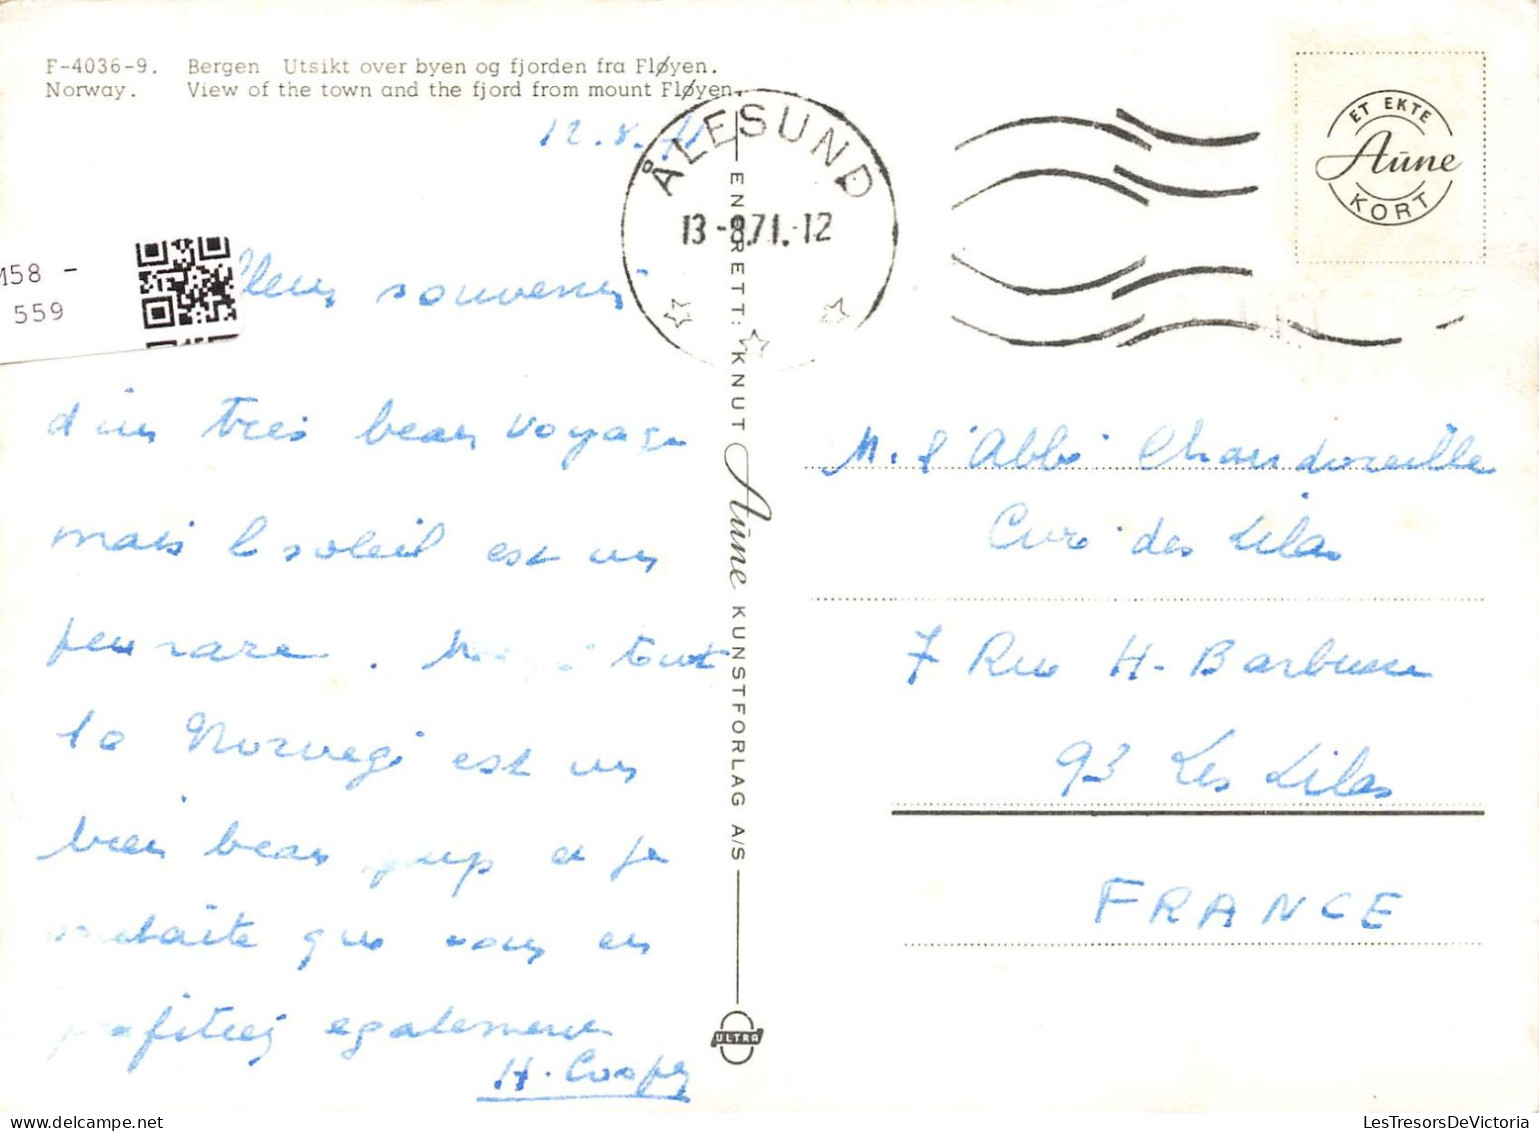 F-4036-9. Bergen Utsikt over byen og fjorden fra Fløyen.
Norway. View of the town and the fjord from mount Fløyen.
12.8.71
ÅLESUND
13-8.71.-12
ET EKTE
Aune
KORT
M58 -
559
lleurs souvenirs
d'un tres beau voyage
mais le soleil est un
peu rare. Malgré tout
la Norvege est un
bien beau pays et je
souhaite que vous en
profitiez egalement
H.
ENERETT: KNUT Aune KUNSTFORLAG A/S
ULTRA
M. l'Abbé Chandoreille
Curé des Lilas
7 Rue H. Barbusse
93 Les Lilas
FRANCE
LesTresorsDeVictoria